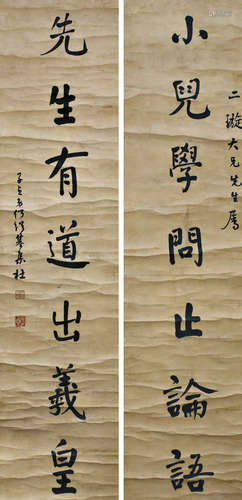 二璇大兄先生屬
小兒學問止論語
先生有道出羲皇
子貞弟何紹基集杜